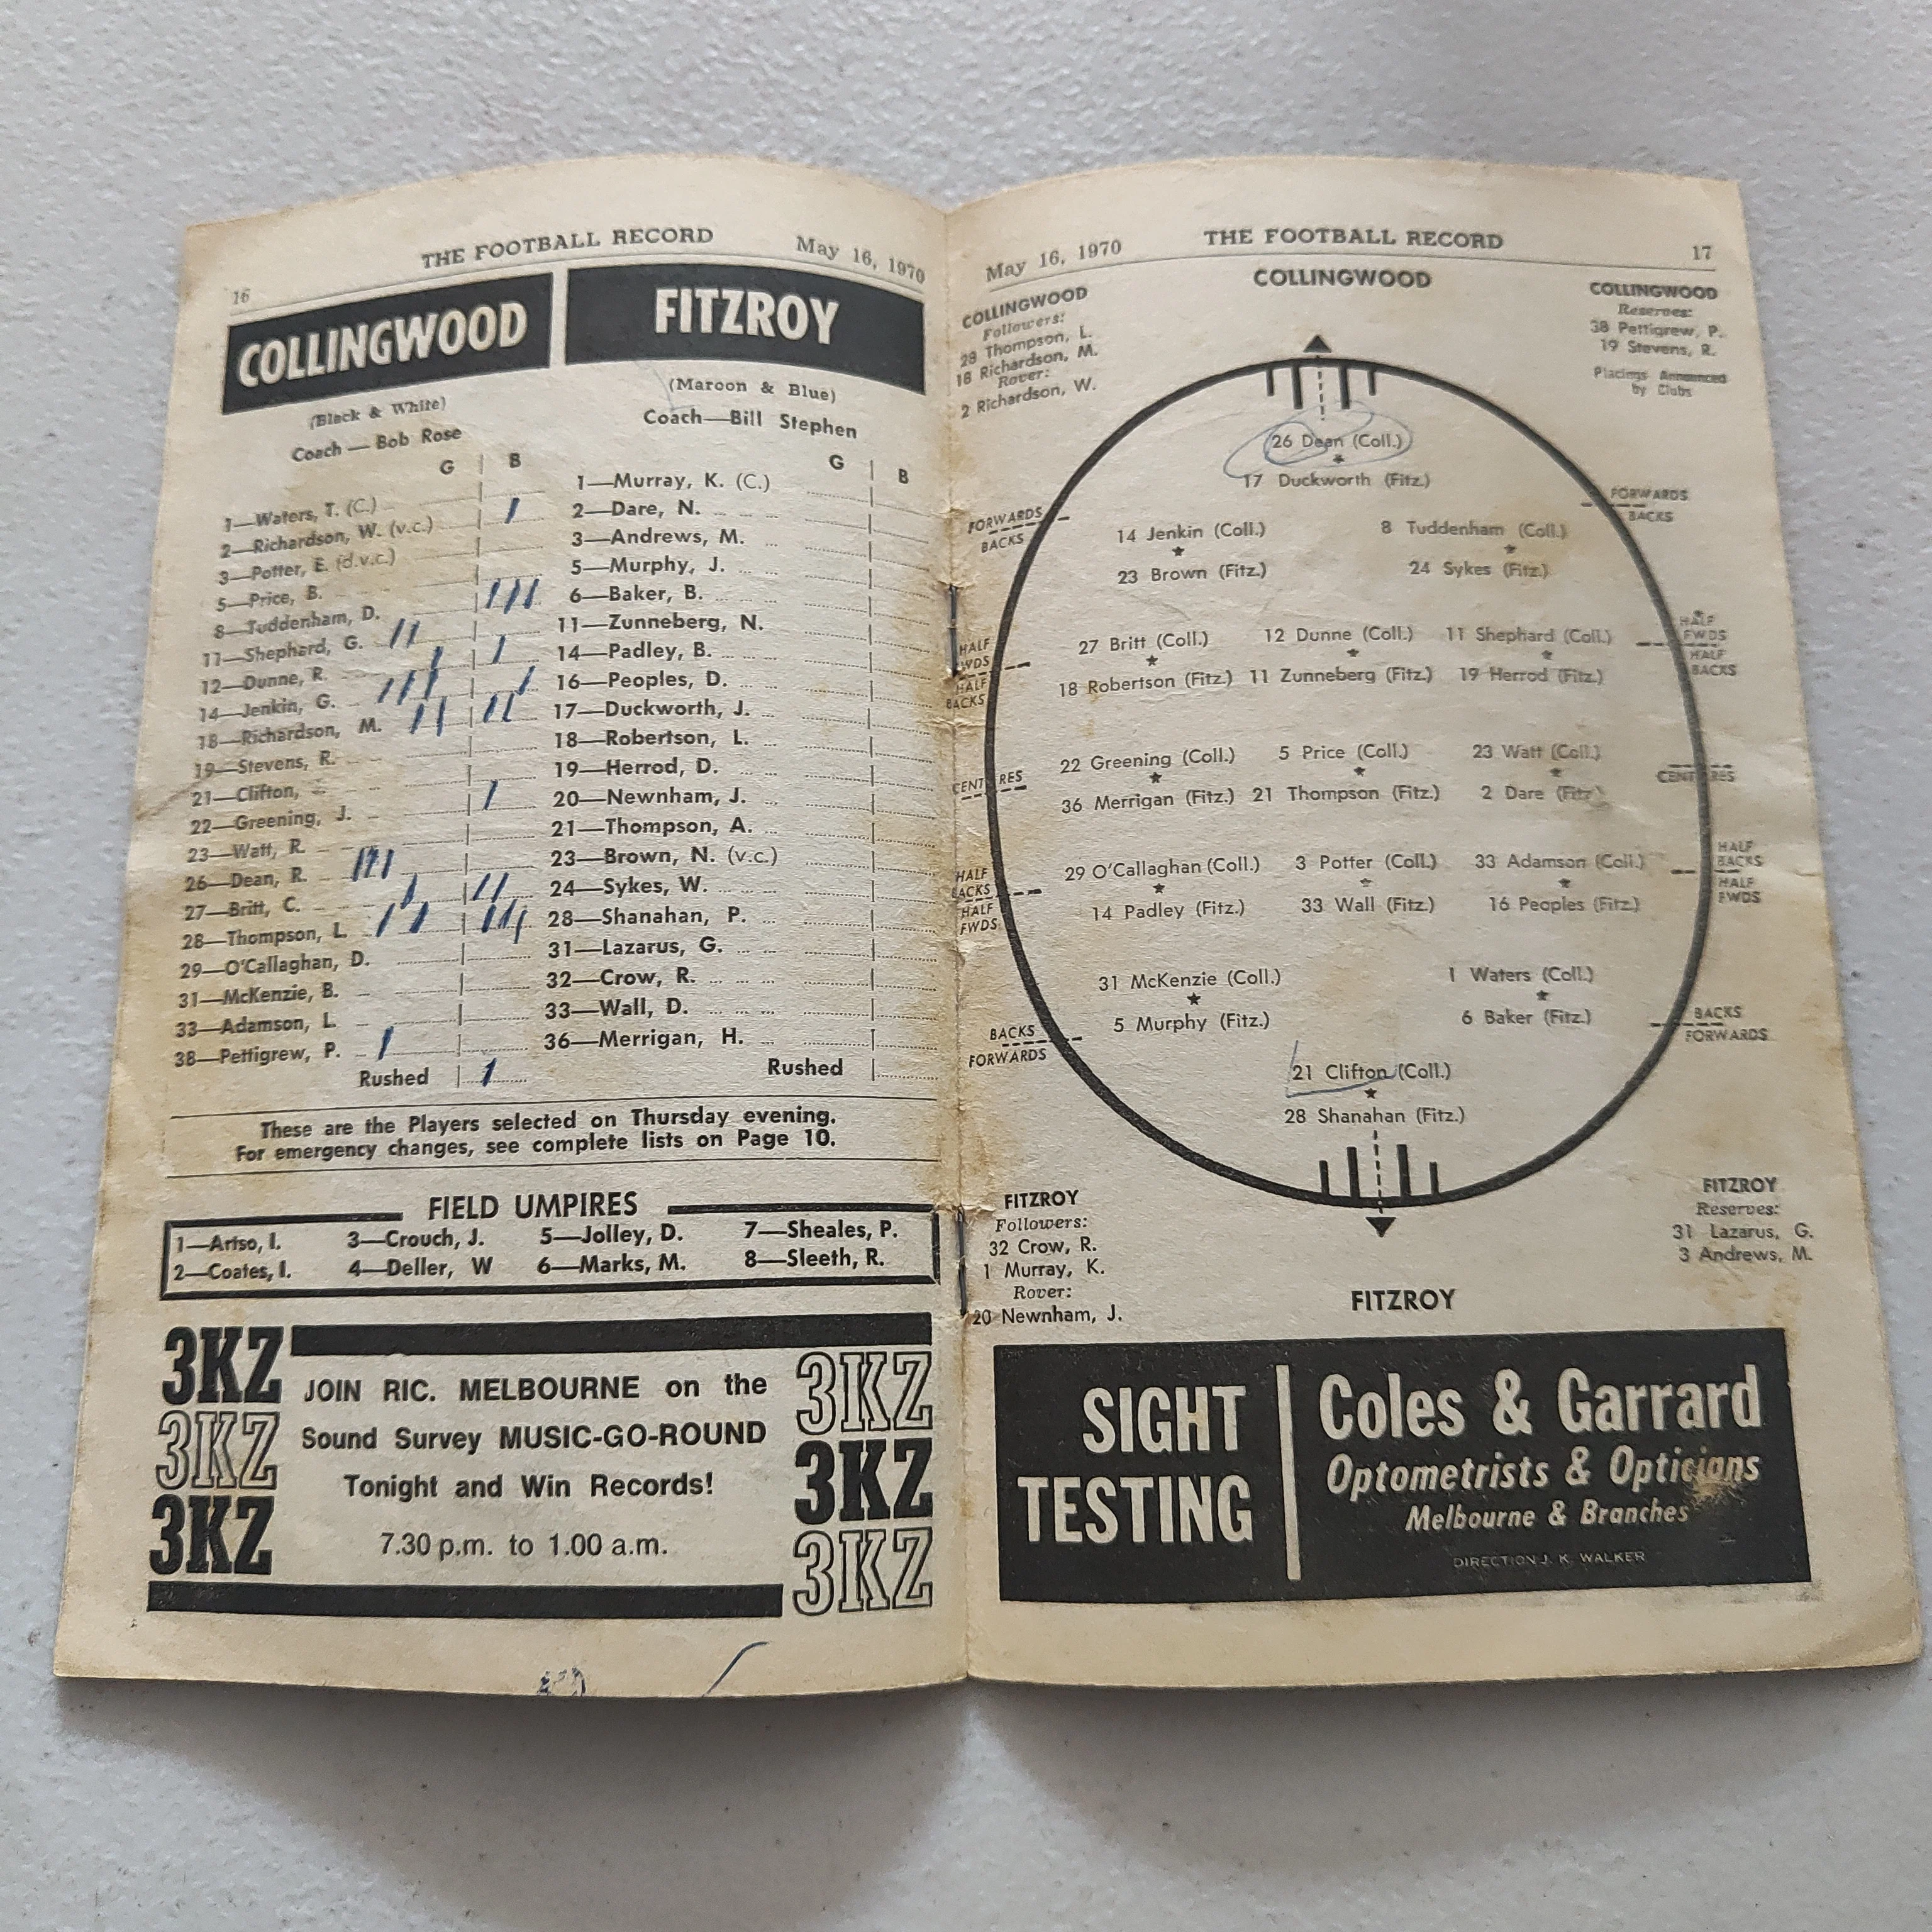 16
THE FOOTBALL RECORD May 16, 1970
COLLINGWOOD
(Black & White)
Coach — Bob Rose
G B
1—Waters, T. (C.)
2—Richardson, W. (v.c.)
3—Potter, E. (d.v.c.)
5—Price, B.
8—Tuddenham, D.
11—Shephard, G.
12—Dunne, R.
14—Jenkin, G.
18—Richardson, M.
19—Stevens, R.
21—Clifton,
22—Greening, J.
23—Watt, R.
26—Dean, R.
27—Britt, C.
28—Thompson, L.
29—O'Callaghan, D.
31—McKenzie, B.
33—Adamson, L.
38—Pettigrew, P.
Rushed
FITZROY
(Maroon & Blue)
Coach—Bill Stephen
G B
1—Murray, K. (C.)
2—Dare, N.
3—Andrews, M.
5—Murphy, J.
6—Baker, B.
11—Zunneberg, N.
14—Padley, B.
16—Peoples, D.
17—Duckworth, J.
18—Robertson, L.
19—Herrod, D.
20—Newnham, J.
21—Thompson, A.
23—Brown, N. (v.c.)
24—Sykes, W.
28—Shanahan, P.
31—Lazarus, G.
32—Crow, R.
33—Wall, D.
36—Merrigan, H.
Rushed
These are the Players selected on Thursday evening.
For emergency changes, see complete lists on Page 10.
FIELD UMPIRES
1—Artso, I. 3—Crouch, J. 5—Jolley, D. 7—Sheales, P.
2—Coates, I. 4—Deller, W 6—Marks, M. 8—Sleeth, R.
3KZ
3KZ
3KZ
JOIN RIC. MELBOURNE on the
Sound Survey MUSIC-GO-ROUND
Tonight and Win Records!
7.30 p.m. to 1.00 a.m.
3KZ
3KZ
3KZ
May 16, 1970 THE FOOTBALL RECORD 17
COLLINGWOOD
COLLINGWOOD
Followers:
28 Thompson, L.
18 Richardson, M.
Rover:
2 Richardson, W.
COLLINGWOOD
Reserves:
38 Pettigrew, P.
19 Stevens, R.
Placings Announced
by Clubs
26 Dean (Coll.)
17 Duckworth (Fitz.)
FORWARDS
BACKS
FORWARDS
BACKS
14 Jenkin (Coll.) 8 Tuddenham (Coll.)
23 Brown (Fitz.) 24 Sykes (Fitz.)
HALF
WDS
HALF
BACKS
HALF
FWDS
HALF
BACKS
27 Britt (Coll.) 12 Dunne (Coll.) 11 Shephard (Coll.)
18 Robertson (Fitz.) 11 Zunneberg (Fitz.) 19 Herrod (Fitz.)
CENTRES
CENTRES
22 Greening (Coll.) 5 Price (Coll.) 23 Watt (Coll.)
36 Merrigan (Fitz.) 21 Thompson (Fitz.) 2 Dare (Fitz.)
HALF
BACKS
HALF
FWDS
HALF
BACKS
HALF
FWDS
29 O'Callaghan (Coll.) 3 Potter (Coll.) 33 Adamson (Coll.)
14 Padley (Fitz.) 33 Wall (Fitz.) 16 Peoples (Fitz.)
31 McKenzie (Coll.) 1 Waters (Coll.)
5 Murphy (Fitz.) 6 Baker (Fitz.)
BACKS
FORWARDS
BACKS
FORWARDS
21 Clifton (Coll.)
28 Shanahan (Fitz.)
FITZROY
Followers:
32 Crow, R.
1 Murray, K.
Rover:
20 Newnham, J.
FITZROY
Reserves:
31 Lazarus, G.
3 Andrews, M.
FITZROY
SIGHT
TESTING
Coles & Garrard
Optometrists & Opticians
Melbourne & Branches
DIRECTION J. K. WALKER